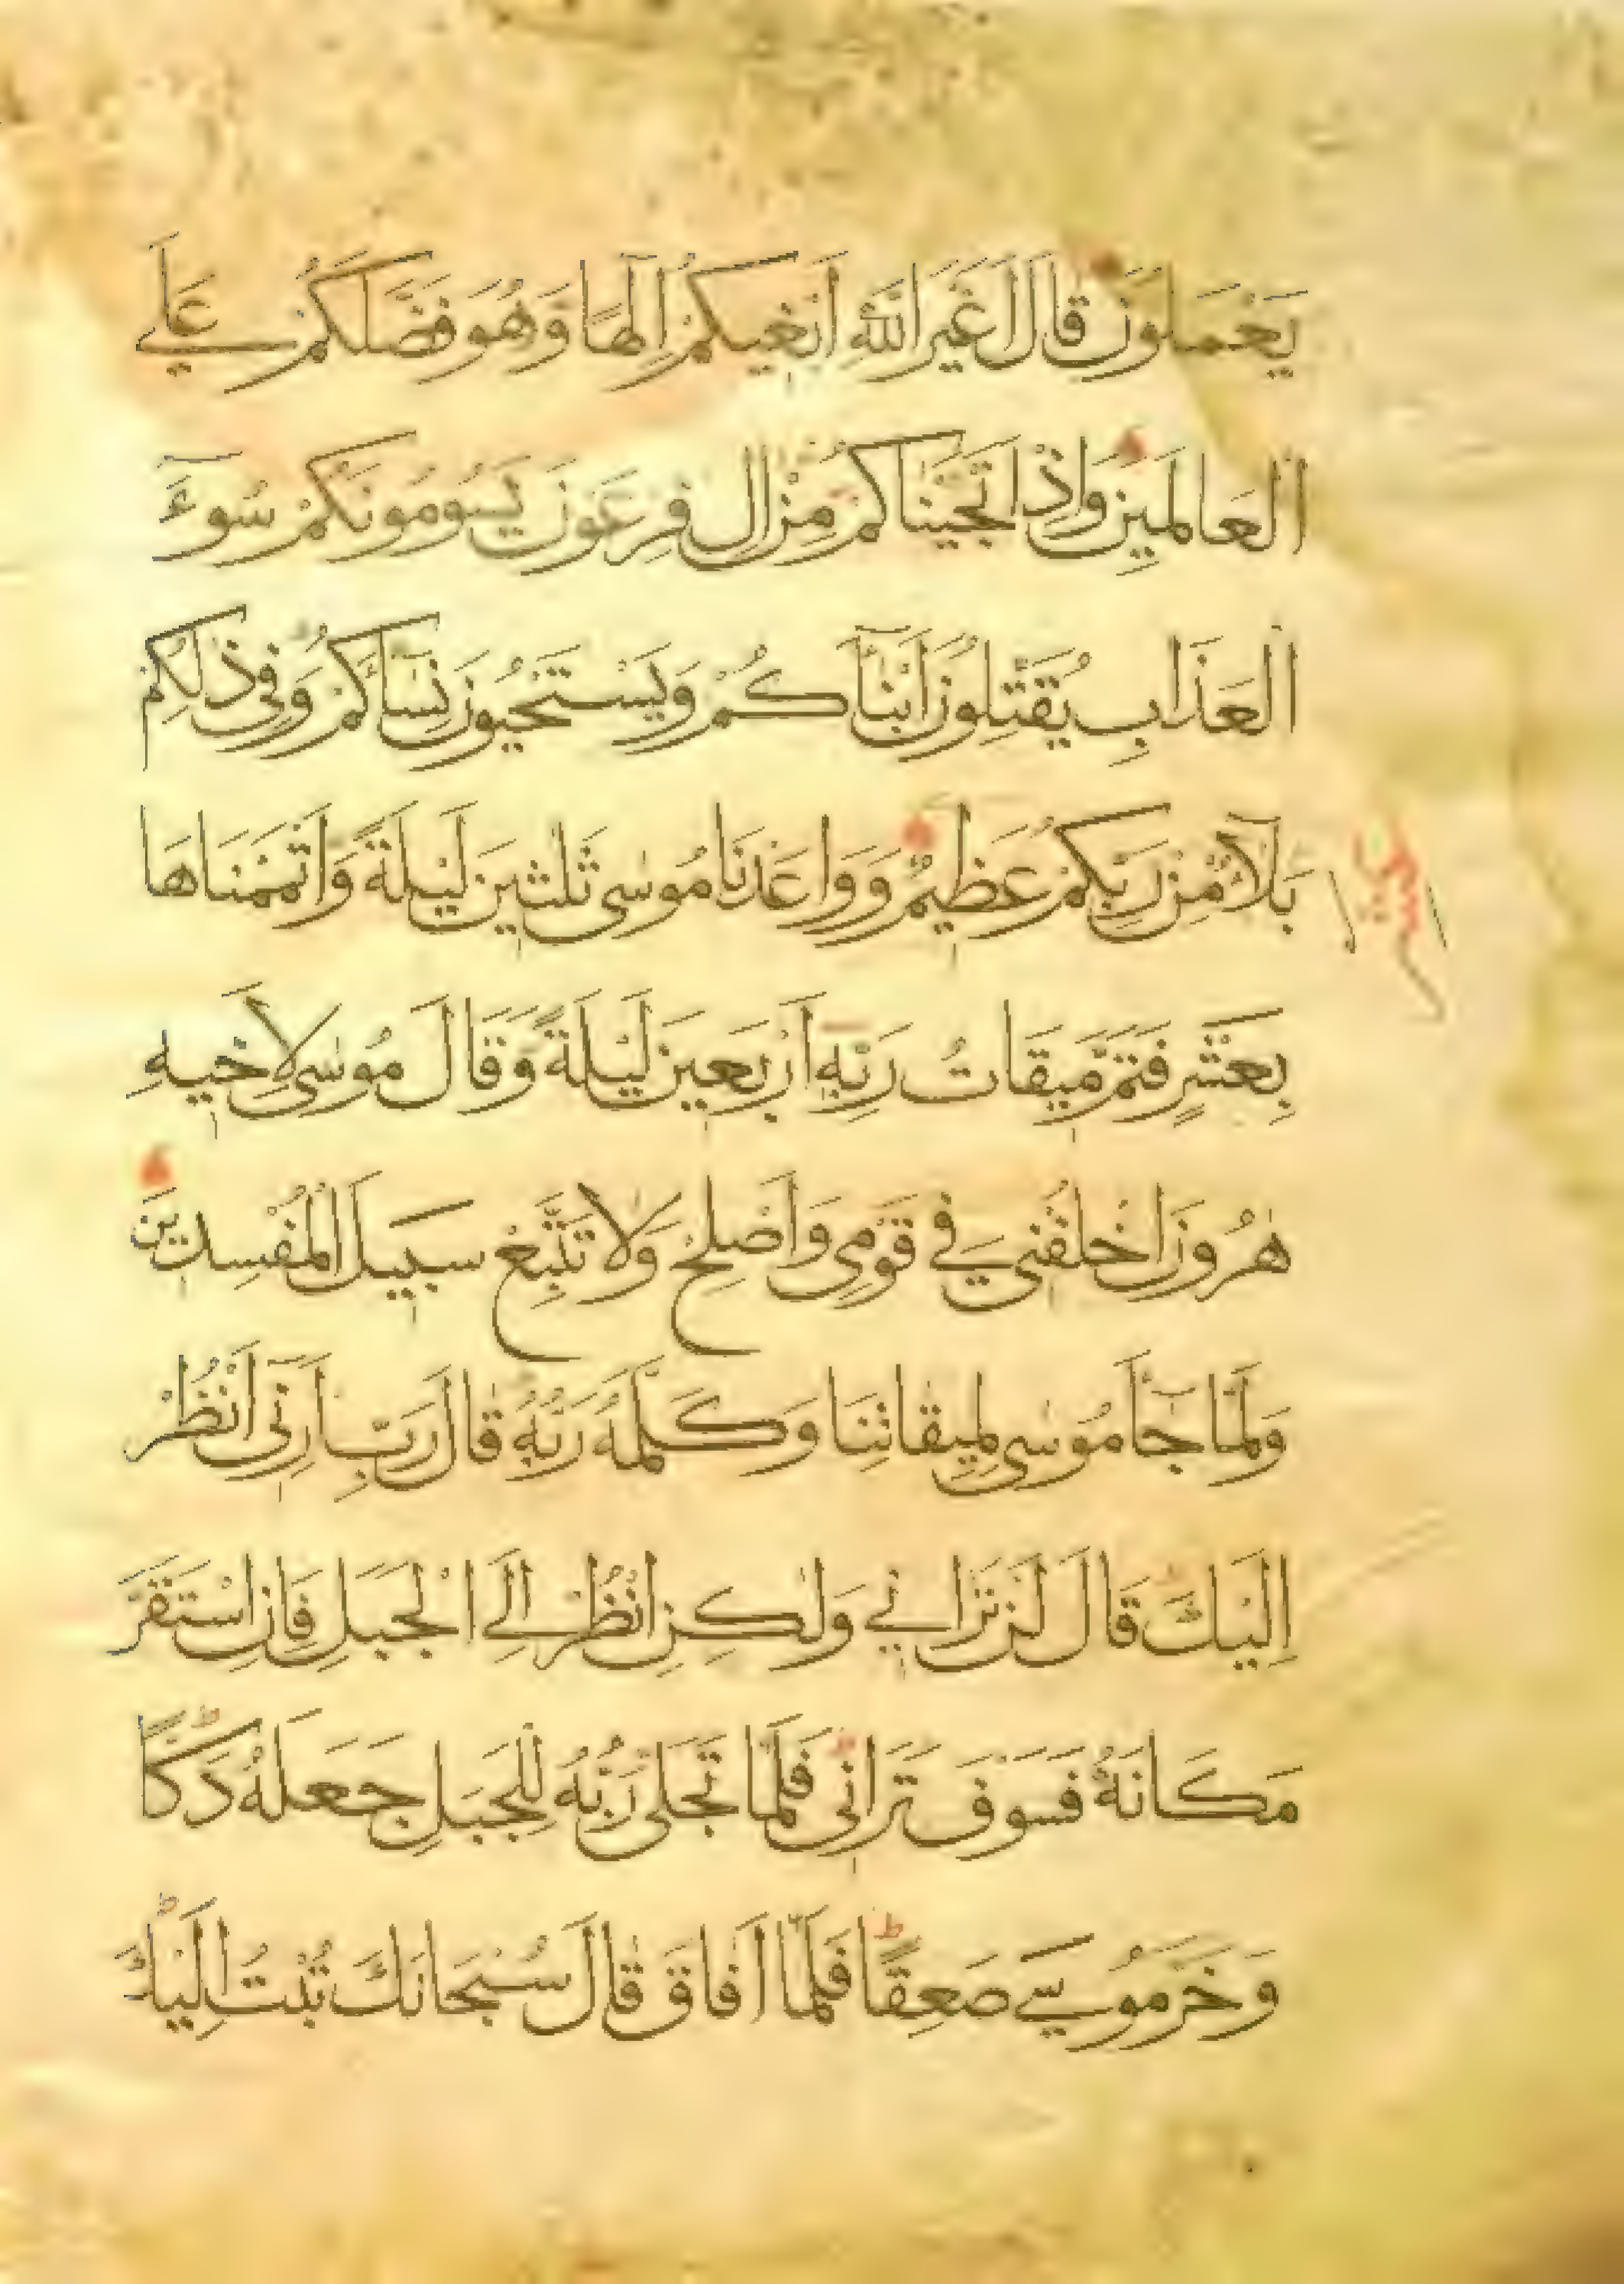 يَعْمَلُونَ قَالَ اَغَيْرَ اللّٰهِ اَبْغِيكُمْ اِلٰهًا وَهُوَ فَضَّلَكُمْ عَلَى
الْعَالَمِينَ وَاِذْ اَنْجَيْنَاكُمْ مِنْ اٰلِ فِرْعَوْنَ يَسُومُونَكُمْ سُوءَ
الْعَذَابِ يُقَتِّلُونَ اَبْنَآكُمْ وَيَسْتَحْيُونَ نِسَآكُمْ وَفِى ذٰلِكُمْ
بَلَآءٌ مِنْ رَبِّكُمْ عَظِيمٌ وَوَاعَدْنَا مُوسٰى ثَلٰثِينَ لَيْلَةً وَاَتْمَمْنَاهَا
بِعَشْرٍ فَتَمَّ مِيقَاتُ رَبِّهٖ اَرْبَعِينَ لَيْلَةً وَقَالَ مُوسٰى لِاَخِيهِ
هٰرُونَ اخْلُفْنِى فِى قَوْمِى وَاَصْلِحْ وَلَا تَتَّبِعْ سَبِيلَ الْمُفْسِدِينَ
وَلَمَّا جَآءَ مُوسٰى لِمِيقَاتِنَا وَكَلَّمَهُ رَبُّهُ قَالَ رَبِّ اَرِنِى اَنْظُرْ
اِلَيْكَ قَالَ لَنْ تَرَانِى وَلٰكِنِ انْظُرْ اِلَى الْجَبَلِ فَاِنِ اسْتَقَرَّ
مَكَانَهُ فَسَوْفَ تَرَانِى فَلَمَّا تَجَلّٰى رَبُّهُ لِلْجَبَلِ جَعَلَهُ دَكًّا
وَخَرَّ مُوسٰى صَعِقًا فَلَمَّا اَفَاقَ قَالَ سُبْحَانَكَ تُبْتُ اِلَيْكَ